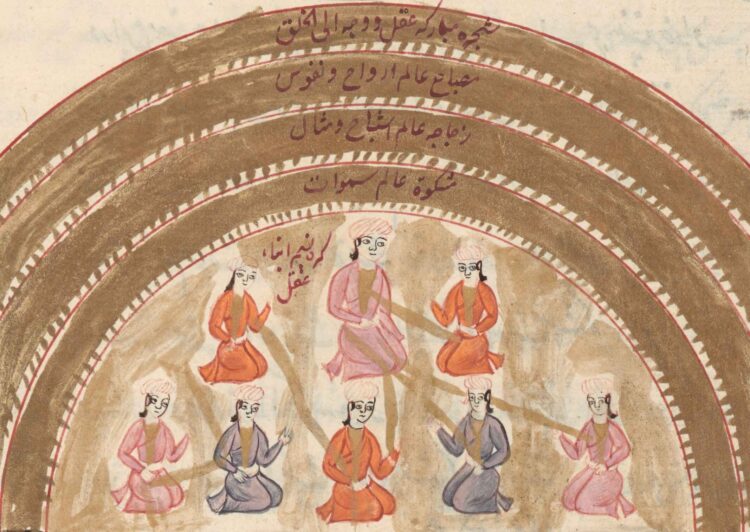 شجره مبارکه عقل و وجه الی الخلق
مصباح عالم ارواح و نفوس
زجاجه عالم اشباح و مثال
مشکوة عالم سموات
ابناء
عقل